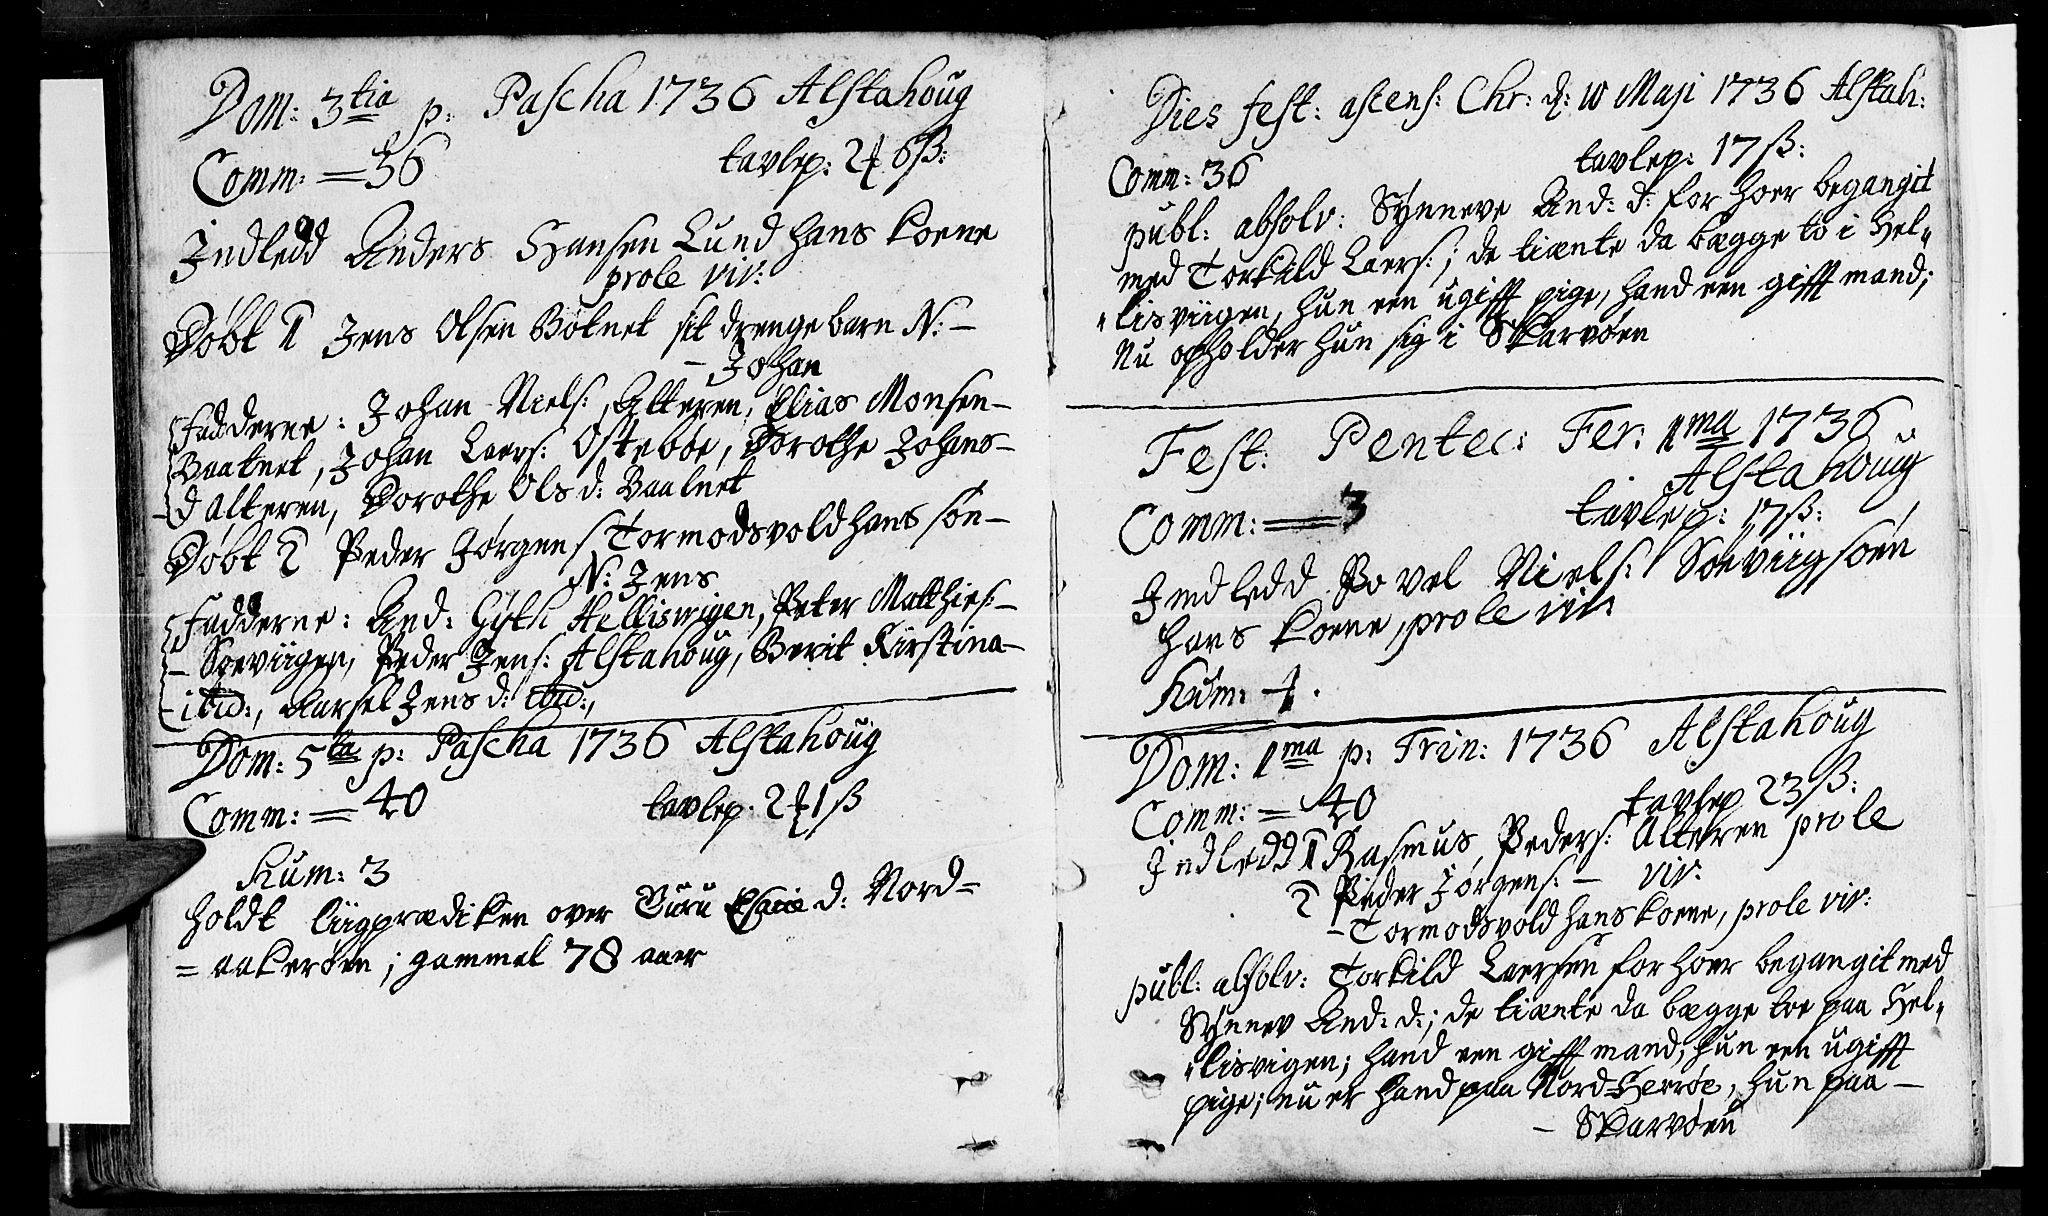 Dom: 3tia p: Pascha 1736 Alstahoug
Comm: = 36 tavlep: 2 ƒ 6 ß:
Indledd Anders Hansen Lund hans Kone
prole viv:
Døbt 1 Jens Olsen Bøtnet sit drengebarn N: –
– Johan
Fadderne: Johan Niels: Alteren, Elias Monsen –
Baatnet, Johan Laers: Ostebøe, Dorothe Johans –
– d Alteren, Dorothe Ols d: Baalnet
Døbt 2 Peder Jørgens Tormodsvold hans søn –
N: Jens
Fadderne: And: Helliswigen, Peter Matthies: –
– Søeviigen, Peder Jens: Alstahoug, Berit Kirstina –
– ibid:, Karsel Jens d: ibid:,
Dom: 5ta p: Pascha 1736 Alstahoug
Comm: = 40 tavlep: 2 ƒ 1 ß
Hum: 3
holdt liigprædiken over Guru d: Nord =
= aakerøen; gammel 78 aaer
Dies fest: ascens: Chr: d: 10 Maji 1736 Alstah:
Comm: 36 tavlep: 17 ß:
publ: absolv: Synneve And: d: for hoer begangit
med Torkild Laers:; de tiænte da begge to i Hel„
„lisviigen, hun een ugifft pige, hand een gifft mand;
Nu opholder hun sig i Skarvøen
Fest: Pentec: Fer: 1ma 1736
Alstahoug
Comm: = 3 tavlep: 17 ß:
Indledd Povel Niels: Søeviigsøen
hans Kone, prole viv:
Hum: 4.
Dom: 1ma p: Trin: 1736 Alstahoug
Comm: = 40 tavlep 23 ß:
Indledd 1 Rasmus Peders: Alteren prole
viv:
2 Peder Jørgens: –
– Tormodsvold hans Kone, prole viv:
publ: absolv: Torkild Laersen for hoer begangit med
Synnev And: d:; de tiænte da bægge toe paa Hel„
„lisvigen; hand een gifft mand, hun een ugifft
pige; nu er hand paa Nord-Herrøe, hun paa –
– Skarvøen